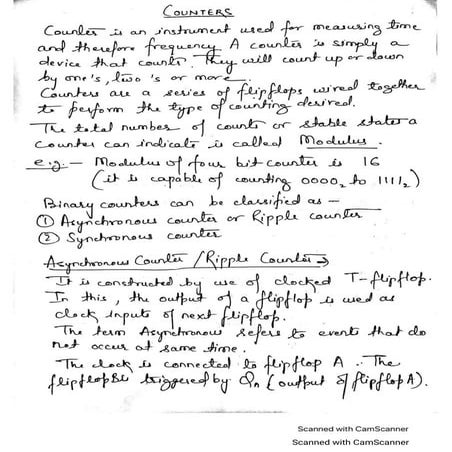 COUNTERS
Counter is an instrument used for measuring time
and therefore frequency. A counter is simply a
device that counts. They will count up or down
by one's, two's or more
Counters are a series of flipflops wired together
to perform the type of counting desired.
The total number of counts or stable states a
Counter can indicate is called Modulus.
e.g:- Modulus of four bit counter is 16
(it is capable of counting 0000₂ to 1111₂)
Binary counters can be classified as -
① Asynchronous counter or Ripple counter
② Synchronous counter
Asynchronous Counter /Ripple Counter →
It is constructed by use of clocked T-flipflop.
In this, the output of a flipflop is used as
clock inputs of next flipflop.
The term Asynchronous refers to events that do
not occur at same time.
The clock is connected to flipflop A .. The
flipflop triggered by Qn (output of flipflop A).
Scanned with CamScanner
Scanned with CamScanner